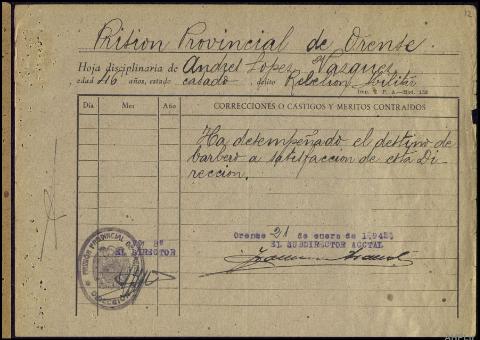 12
Prision Provincial de Orense.
Hoja disciplinaria de Andres Lopez Vazquez
edad 46 años, estado casado, delito Rebelion Militar
Día Mes Año CORRECCIONES O CASTIGOS Y MERITOS CONTRAIDOS
Ha desempeñado el destino de
barbero a satisfaccion de esta Di-
reccion.
Orense 21 de enero de
EL DIRECTOR
EL SUBDIRECTOR ACCTAL
PRISIÓN PROVINCIAL
DIRECCION